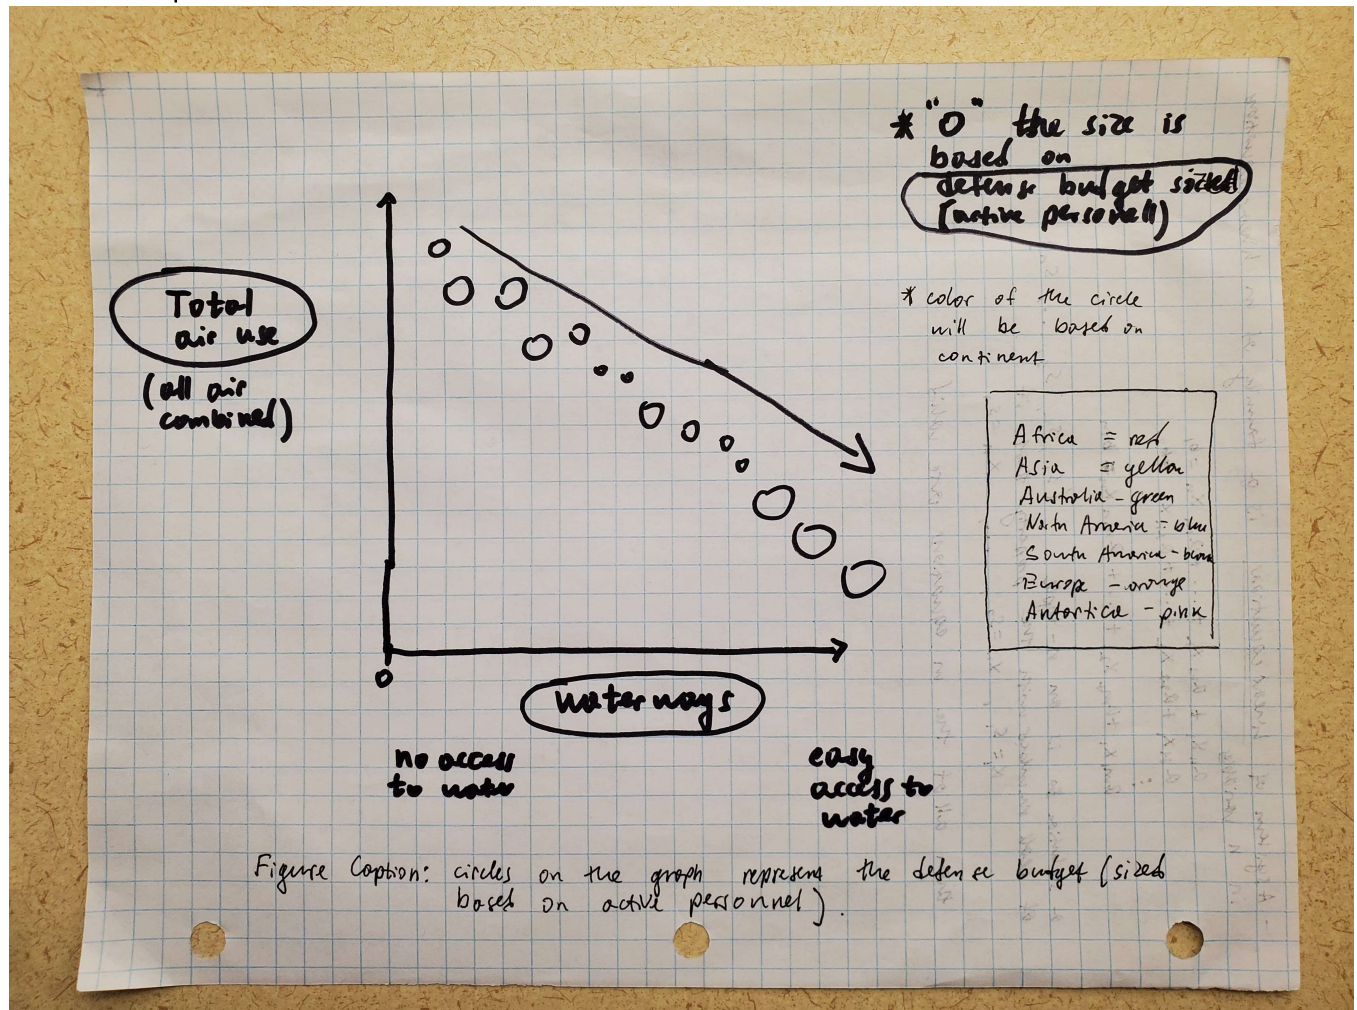 * "O" the size is
based on
defense budget sized
(active personell)
Total
air use
(all air
combined)
* color of the circle
will be based on
continent
Africa = red
Asia = yellow
Australia - green
North America - blue
South America - brown
Europe - orange
Antartica - pink
0
waterways
no access
to water
easy
access to
water
Figure Caption: circles on the graph represent the defense budget (sized
based on active personnel).